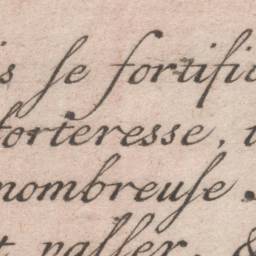 s ſe fortifi
forteresse,
nombreuſe.
t paſſer, &